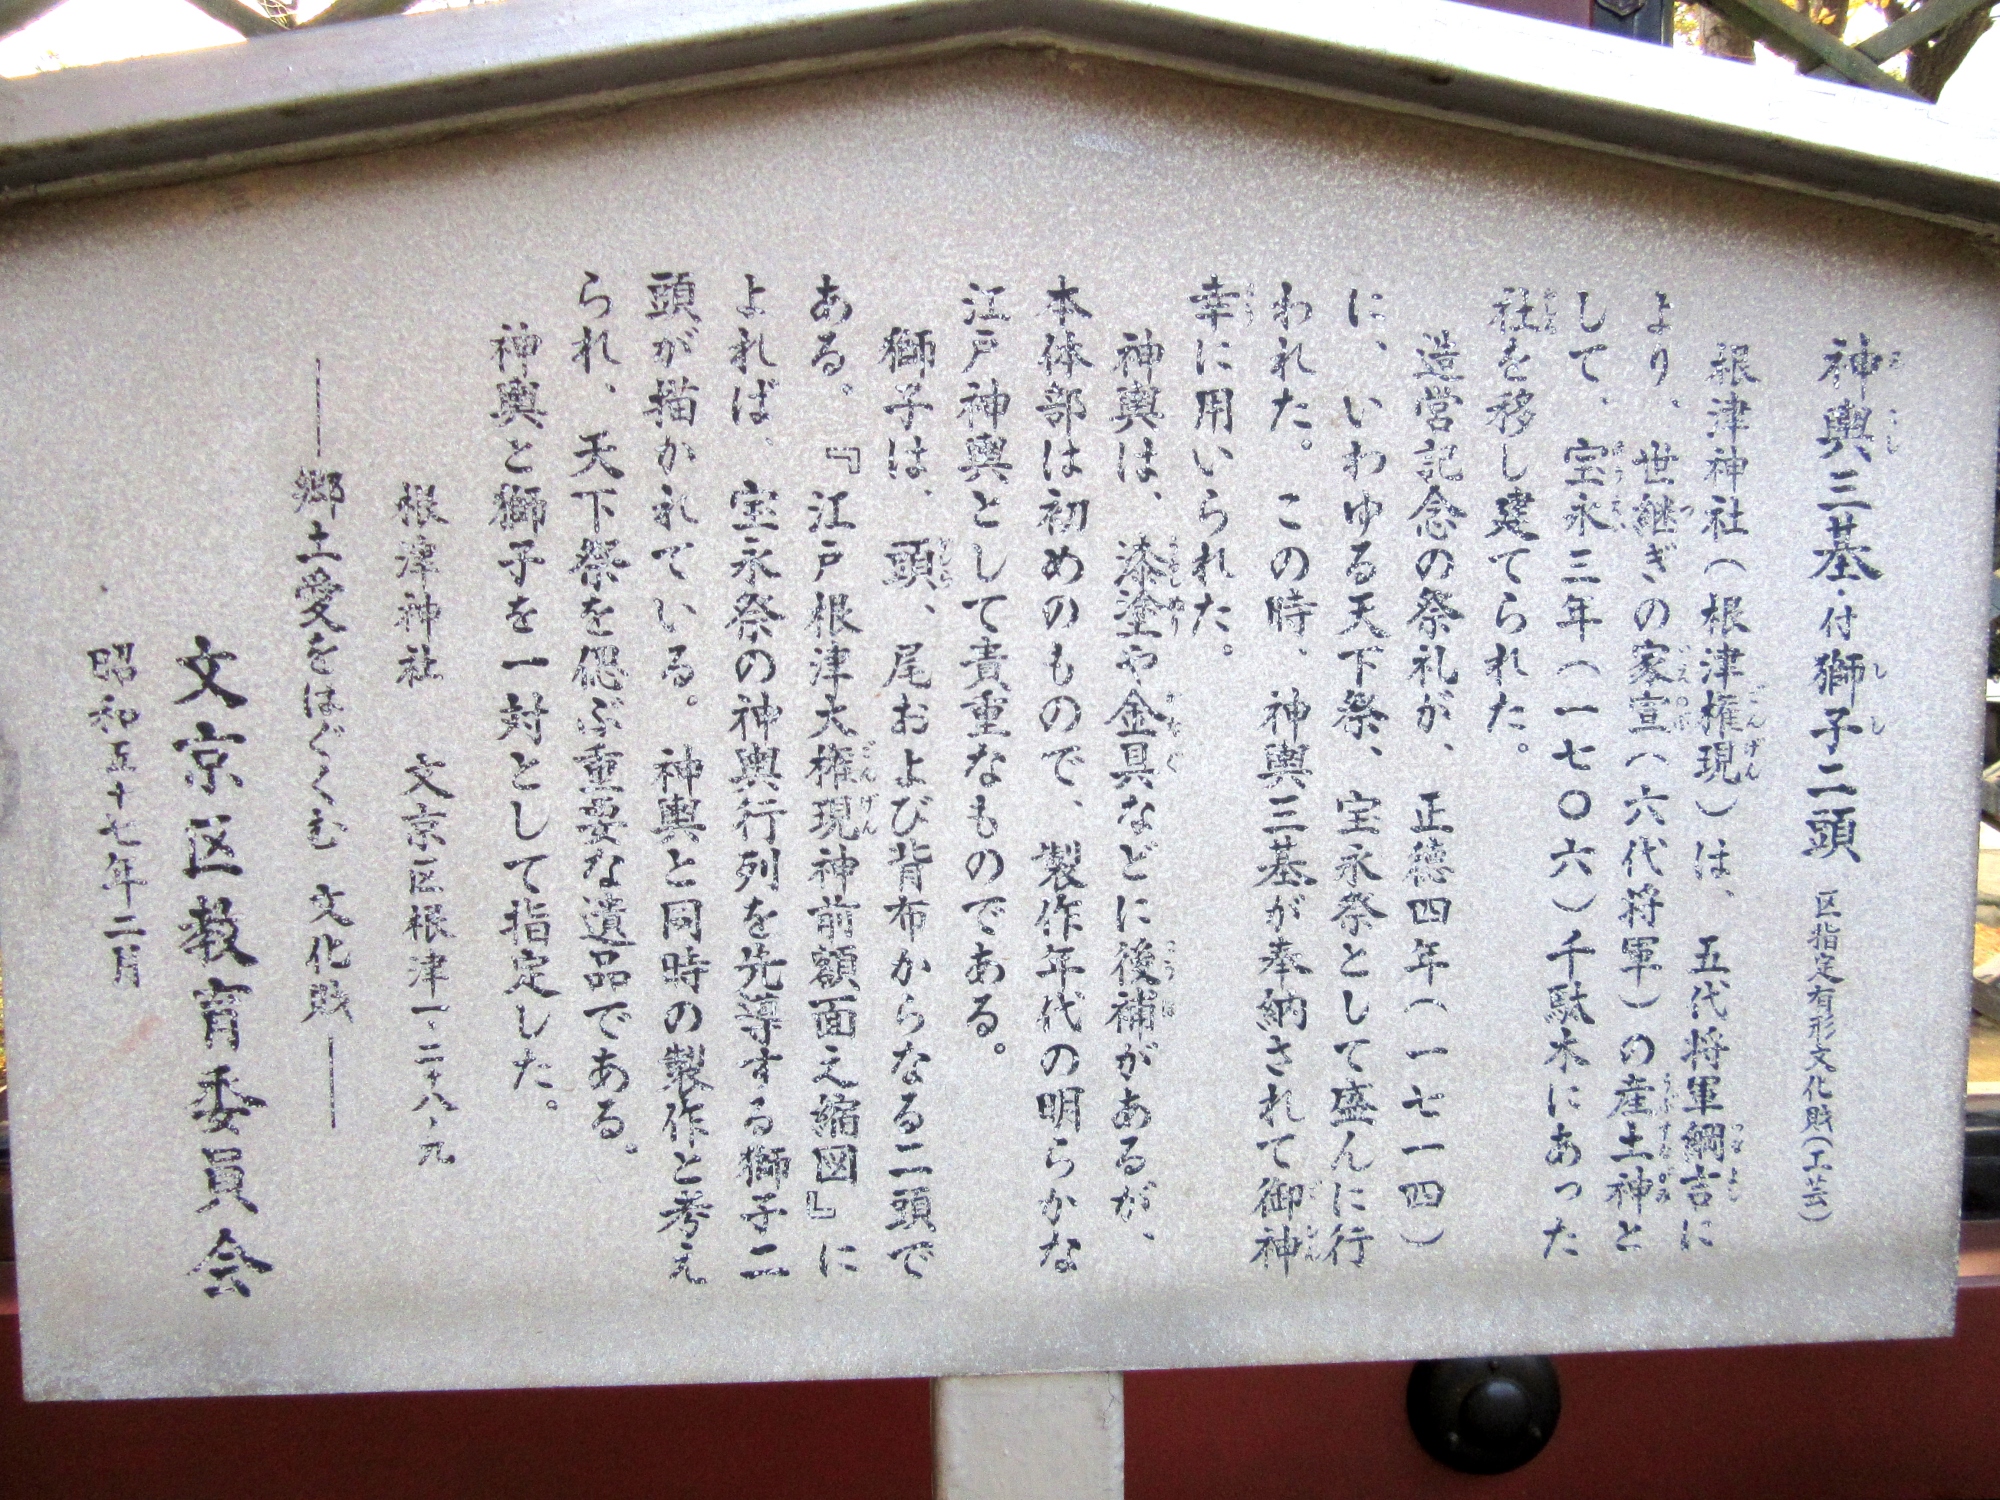 神輿三基・付獅子二頭 区指定有形文化財(工芸)
根津神社(根津権現)は、五代将軍綱吉に
より、世継ぎの家宣(六代将軍)の産土神と
して、宝永三年(一七〇六)千駄木にあった
社を移し建てられた。
造営記念の祭礼が、正徳四年(一七一四)
に、いわゆる天下祭、宝永祭として盛んに行
われた。この時、神輿三基が奉納されて御神
幸に用いられた。
神輿は、漆塗や金具などに後補があるが、
本体部は初めのもので、製作年代の明らかな
江戸神輿として貴重なものである。
獅子は、頭、尾および背布からなる二頭で
ある。『江戸根津大権現神前額面え縮図』に
よれば、宝永祭の神輿行列を先導する獅子二
頭が描かれている。神輿と同時の製作と考え
られ、天下祭を偲ぶ重要な遺品である。
神輿と獅子を一対として指定した。
根津神社 文京区根津一、二十八、九
――郷土愛をはぐくむ 文化財――
文京区教育委員会
昭和五十七年二月